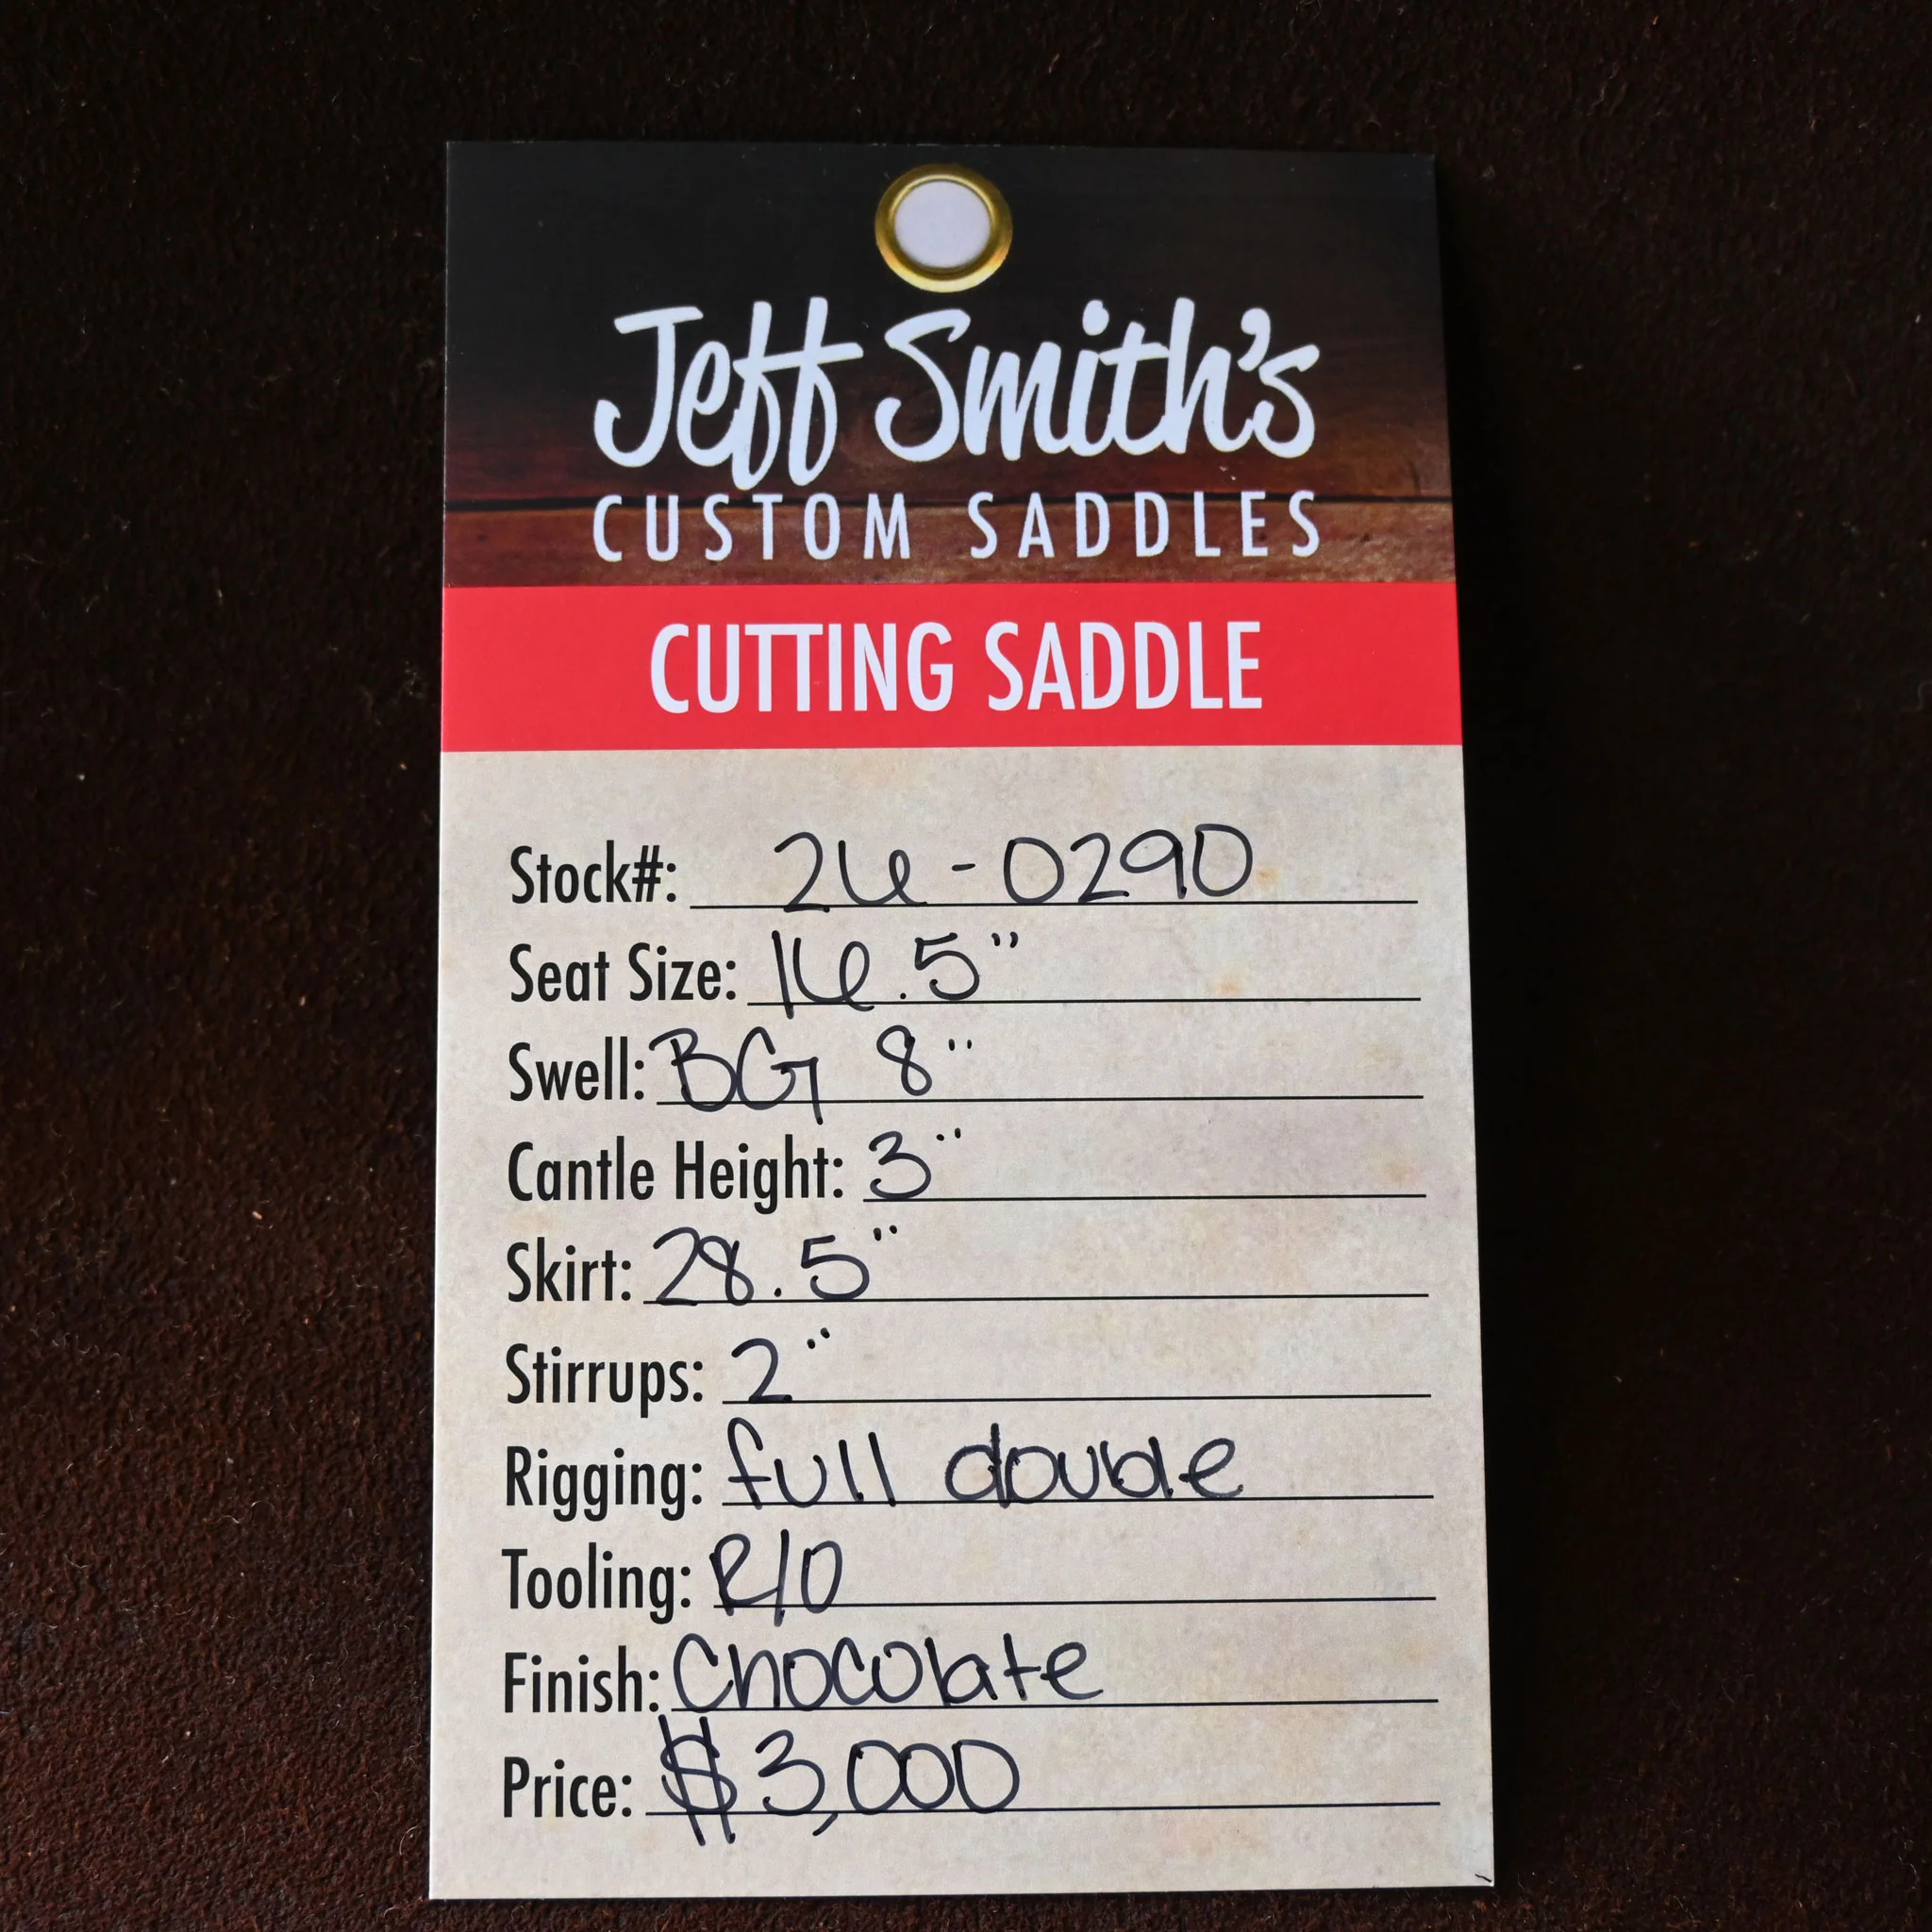 Jeff Smith's
CUSTOM SADDLES
CUTTING SADDLE
Stock#: 26-0290
Seat Size: 16.5"
Swell: BG 8"
Cantle Height: 3"
Skirt: 28.5"
Stirrups: 2"
Rigging: full double
Tooling: R/O
Finish: Chocolate
Price: $3,000